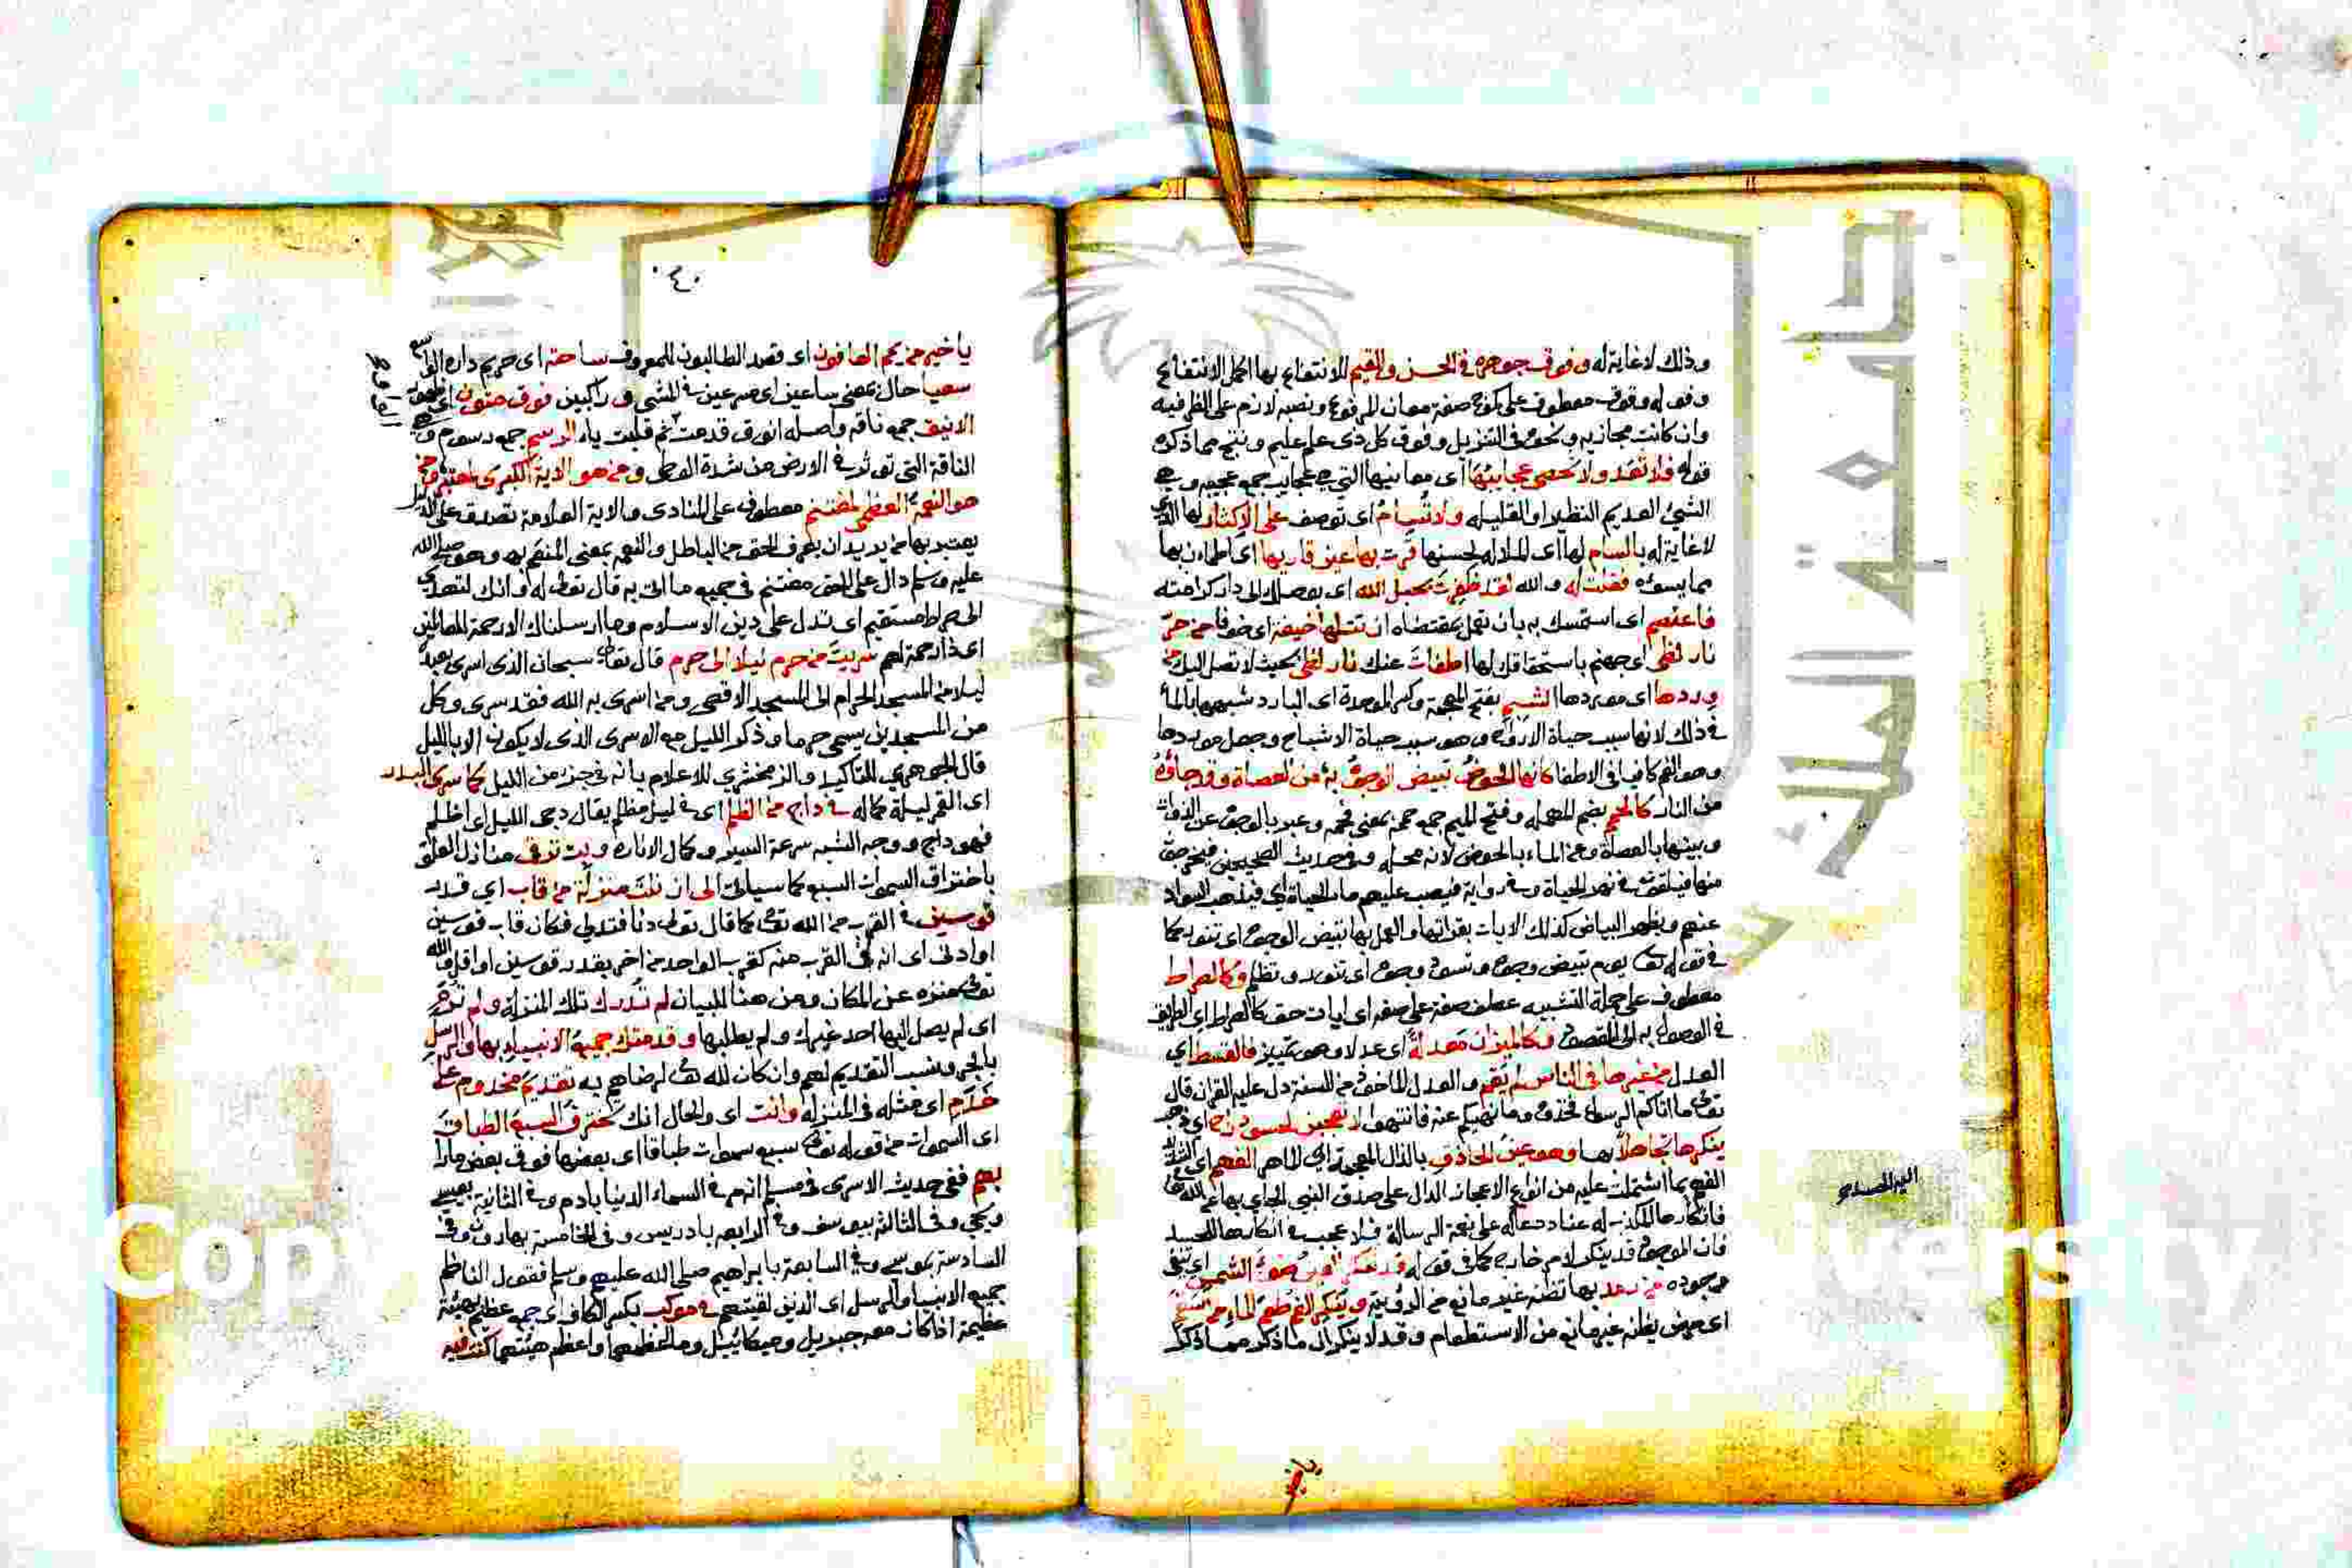 وذلك لاغاية له وفوق جوهره في الحسن والقيم للانتفاع بها اكمل الانتفاع
وقوله وفوق معطوف على كموج صفة معان للمرفوع ونصبه لازم على الظرفيه
وان كانت مجازيه ونحوه في التنزيل وفوق كل ذي علم عليم ونتج مما ذكره
قوله فلا تعد ولا تحصى عجايبها اى معانيها التي هي عجايب جمع عجيبه وهي
الشئ العديم النظير او القليله ولا تسام اى توصف على الاكثار لها الذي
لاغاية له بالسام لها اى الملالة لحسنها قرت بها عين قاريها اى اطمأن بها
مما يسوءه فقلت له والله لقد ظفرت بحبل الله اى يوصلك الى دار كرامته
فاعتصم اى استمسك به بان تعمل بمقتضاه ان تتلها خيفة اى خوفا من حر
نار لظى اى جهنم باستحقاقك لها اطفات عنك نار لظى بحيث لا تصل اليك من
وردها اى موردها الشبم بفتح المعجمة وكسر الموحدة اى البارد شبهها بالماء
في ذلك لانها سبب حياة الارواح وهو سبب حياة الاشباح وجعل موردها
وهو الفم كافيا في الاطفا كانها الحوض تبيض الوجوه به من العصاة وقد جاؤه
من النار كالحمم بضم المهمله وفتح الميم جمع حممة بمعنى فحمه وعبر بالوجوه عن الذوات
وبينها بالعصاة وعن الماء بالحوض لانه محله وفي حديث الصحيحين فيخرجون
منها فيلقون في نهر الحياة وفي رواية فيصب عليهم ماء الحياة اي فيذهب السواد
عنهم ويظهر البياض كذلك الايات بقراتها والعمل بها تبيض الوجوه اى تنور كما
في قوله تعالى يوم تبيض وجوه وتسود وجوه اى تنور وتظلم وكالصراط
معطوف على جملة التشبيه عطف صفة على صفه اى ايات حق كالصراط اى الطريق
في الوصول به الى المقصود وكالميزان معدلة اى عدلا وهو تمييز فالقسط اي
العدل من غيرها في الناس لم يقم والعدل الماخوذ من السنة دل عليه القران قال
تعالى ما اتاكم الرسول فخذوه وما نهيكم عنه فانتهوا لا تعجبن لحسود راح اى ذهب
ينكرها تجاهلا بها وهو عين الحاذق بالذال المعجمة اى الماهر الفهم اى
الفهم بما اشتملت عليه من انواع الاعجاز الدال على صدق النبي الجاي بها
فانكارها لذلك له عناد حمله على نعمة الرسالة فلا عجب في انكارها للحسد
فان الموجود قد ينكر لامر خارج كما في قوله قد تنكر العين ضوء الشمس اى تنفي
وجوده من رمد بها تظنه غير مانع من الرؤية وينكر الفم طعم الماء من سقم
اى مرض يظنه غير مانع من الاستطعام وقد لا ينكر ان ما ذكر مما ذكر
اليه المصدر
٤٠
يا خير من يمم العافون اى قصد الطالبون للمعروف ساحته اى حريم داره الواسع
سعيا حال بمعنى ساعين اى مسرعين في المشي و راكبين فوق متون اى ظهور
الانيق جمع ناقه واصله انوق قدمت ثم قلبت ياء الرسم جمع رسوم وهي
الناقة التي تؤثر في الارض من شدة الوطى ومن هو الاية الكبرى لمعتبر ومن
هو النعمة العظمى لمغتنم معطوف على المنادى والاية العلامة تصدق على الذي
يعتبر بها من يريد ان يعرف الحق من الباطل والنعم بمعنى المنعم به وهو صلى الله
عليه وسلم دال على الحق مغتنم في جميع ما اتى به قال تعالى له وانك لتهدي
الى صراط مستقيم اى تدل على دين الاسلام وما ارسلناك الا رحمة للعالمين
اى ذا رحمة لهم سريت من حرم ليلا الى حرم قال تعالى سبحان الذى اسرى بعبده
ليلا من المسجد الحرام الى المسجد الاقصى ومن اسرى به الله فقد سرى وكل
من المسجدين يسمى حرما وذكر الليل مع الاسرى الذى لا يكون الا بالليل
قال الجوهري للتاكيد والزمخشري للاعلام بانه في جزء من الليل كما سرى البدر
اى القمر ليلة كماله في داج من الظلم اى في ليل مظلم يقال دجى الليل اى اظلم
فهو داج ووجه الشبه سرعة السير وكمال الانارة وبت ترقى منازل العلو
باختراق السموات السبع كما سياتي الى ان نلت منزلة من قاب اي قدر
قوسين في القرب من الله تعالى كما قال تعالى دنا فتدلى فكان قاب قوسين
او ادنى اى انه في القرب منه كقرب الواحد من اخر بقدر قوسين او اقل والله
تعالى منزه عن المكان ومن هنا للبيان لم تدرك تلك المنزلة ولم ترم
اى لم يصل اليها احد غيرك ولم يطلبها وقدمتك جميع الانبياء بها والرسل
بالجر ونسب التقديم لهم وان كان لله تعالى لرضاهم به تقديم مخدوم على
خدم اى مثله في المنزلة وانت اى والحال انك تخترق السبع الطباق
اى السموات من قوله تعالى سبع سموات طباقا اى بعضها فوق بعض مارا
بهم ففي حديث الاسرى في مسلم انه مر في السماء الدنيا بادم وفي الثانية بعيسى
ويحيى وفي الثالثة بيوسف وفي الرابعه بادريس وفي الخامسة بهارون وفي
السادسة بموسى وفي السابعة بابراهيم صلى الله عليهم وسلم فقول الناظم
جميع الانبيا والرسل اى الذين لقيتهم في موكب بكسر الكاف اى جمع عظيم بهيئة
عظيمة اذا كان معه جبريل وميكائيل وما اعظمهما واعظم هيئتهما كنت فيه
جامعة الملك
Cop
rsity